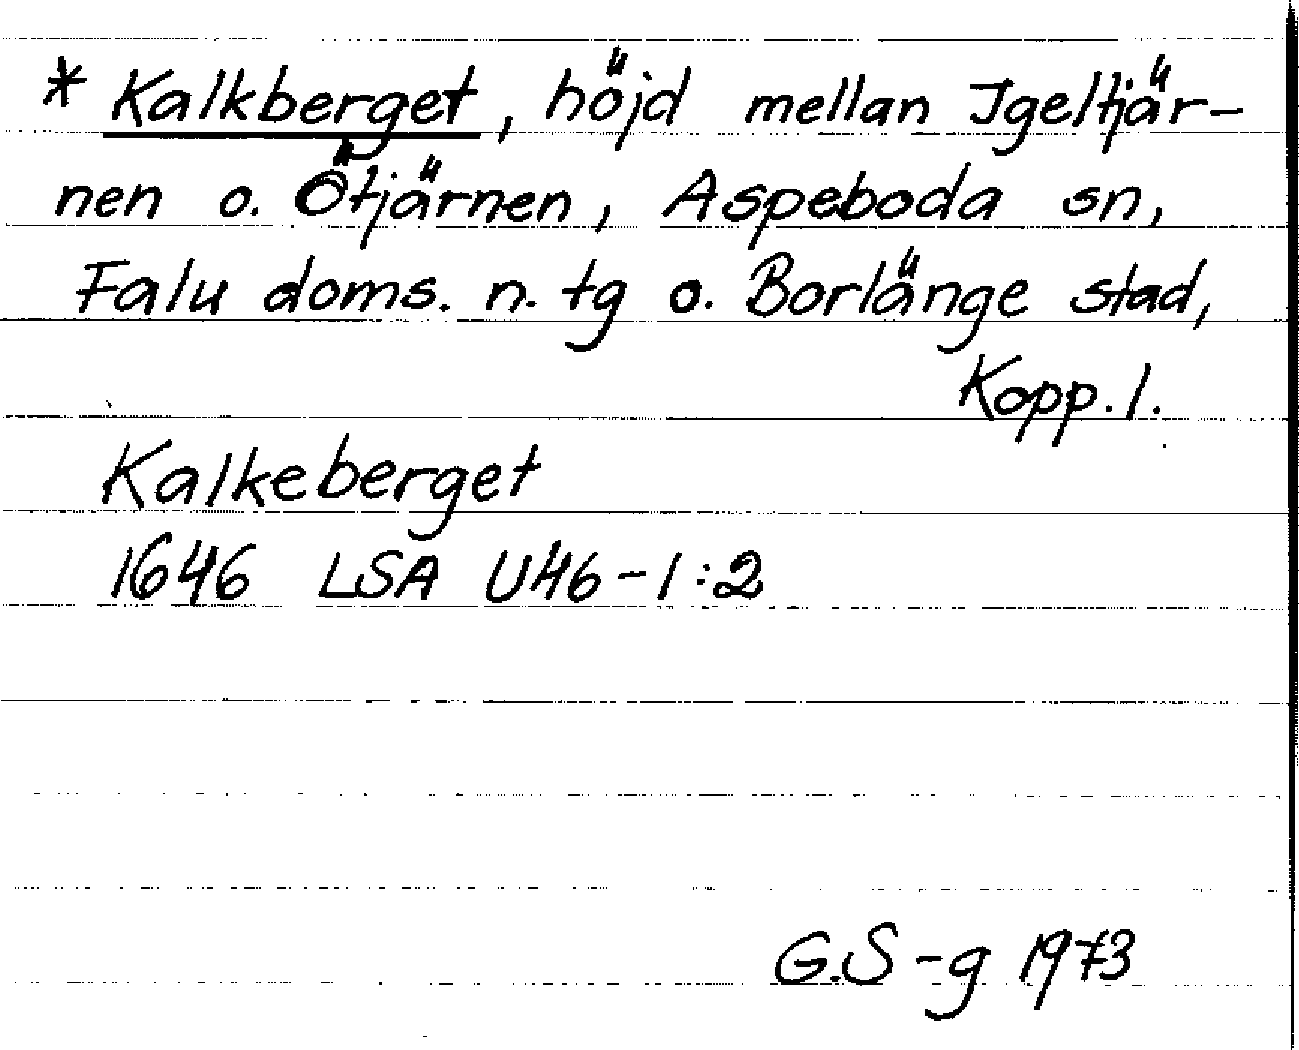 * Kalkberget, höjd mellan Igeltjär-
nen o. Ötjärnen, Aspeboda sn,
Falu doms. n. tg o. Borlänge stad,
Kopp. l.
Kalkeberget
1646 LSA U46-1:2
G.S-g 1973